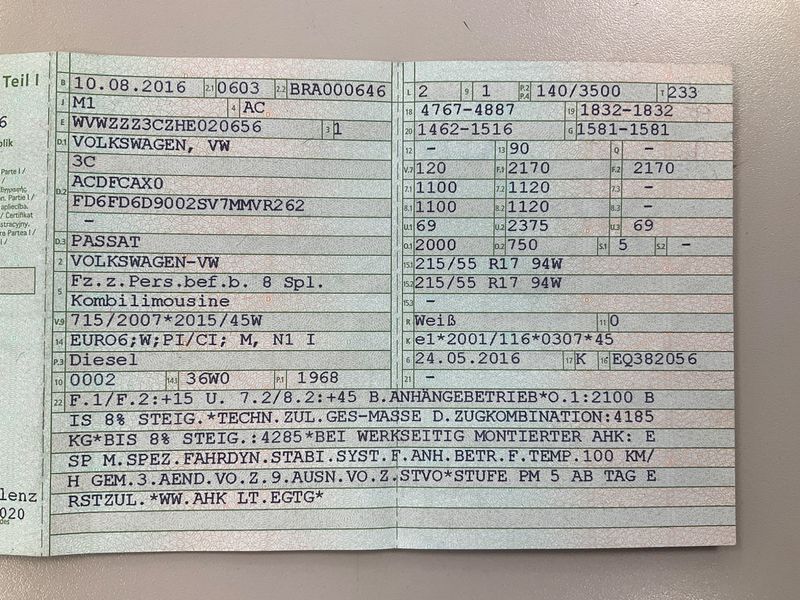 Teil I
B 10.08.2016 2.1 0603 2.2 BRA000646
J M1 4 AC
E WVWZZZ3CZHE020656 3 1
D.1 VOLKSWAGEN, VW
D.2 3C
ACDFCAX0
FD6FD6D9002SV7MMVR262
-
D.3 PASSAT
2 VOLKSWAGEN-VW
5 Fz.z.Pers.bef.b. 8 Spl.
Kombilimousine
V.9 715/2007*2015/45W
14 EURO6;W;PI/CI; M, N1 I
P.3 Diesel
10 0002 14.1 36W0 P.1 1968
L 2 9 1 P.2 P.4 140/3500 T 233
18 4767-4887 19 1832-1832
20 1462-1516 G 1581-1581
12 - 13 90 Q -
V.7 120 F.1 2170 F.2 2170
7.1 1100 7.2 1120 7.3 -
8.1 1100 8.2 1120 8.3 -
U.1 69 U.2 2375 U.3 69
O.1 2000 O.2 750 S.1 5 S.2 -
15.1 215/55 R17 94W
15.2 215/55 R17 94W
15.3 -
R Weiß 11 0
K e1*2001/116*0307*45
6 24.05.2016 17 K 16 EQ382056
21 -
22 F.1/F.2:+15 U. 7.2/8.2:+45 B.ANHÄNGEBETRIEB*O.1:2100 B
IS 8% STEIG.*TECHN.ZUL.GES-MASSE D.ZUGKOMBINATION:4185
KG*BIS 8% STEIG.:4285*BEI WERKSEITIG MONTIERTER AHK: E
SP M.SPEZ.FAHRDYN.STABI.SYST.F.ANH.BETR.F.TEMP.100 KM/
H GEM.3.AEND.VO.Z.9.AUSN.VO.Z.STVO*STUFE PM 5 AB TAG E
RSTZUL.*WW.AHK LT.EGTG*
lenz
020